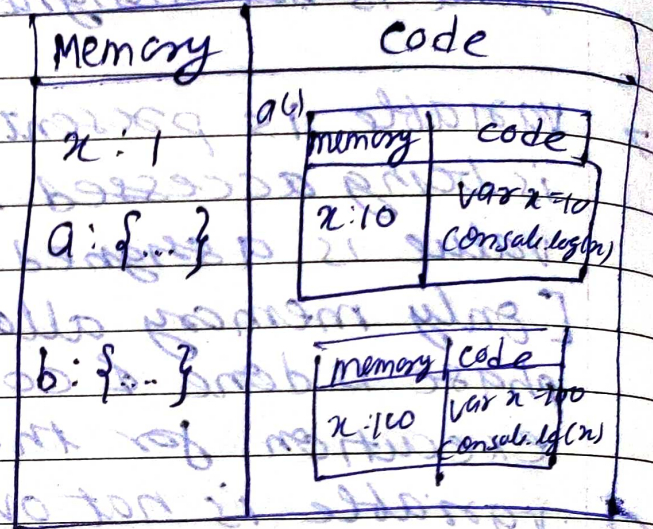 Memory Code
x : 1
a()
memory code
x:10 var x=10
console.log(x)
a : {...}
b : {...}
memory code
x:100 var x=100
console.log(x)